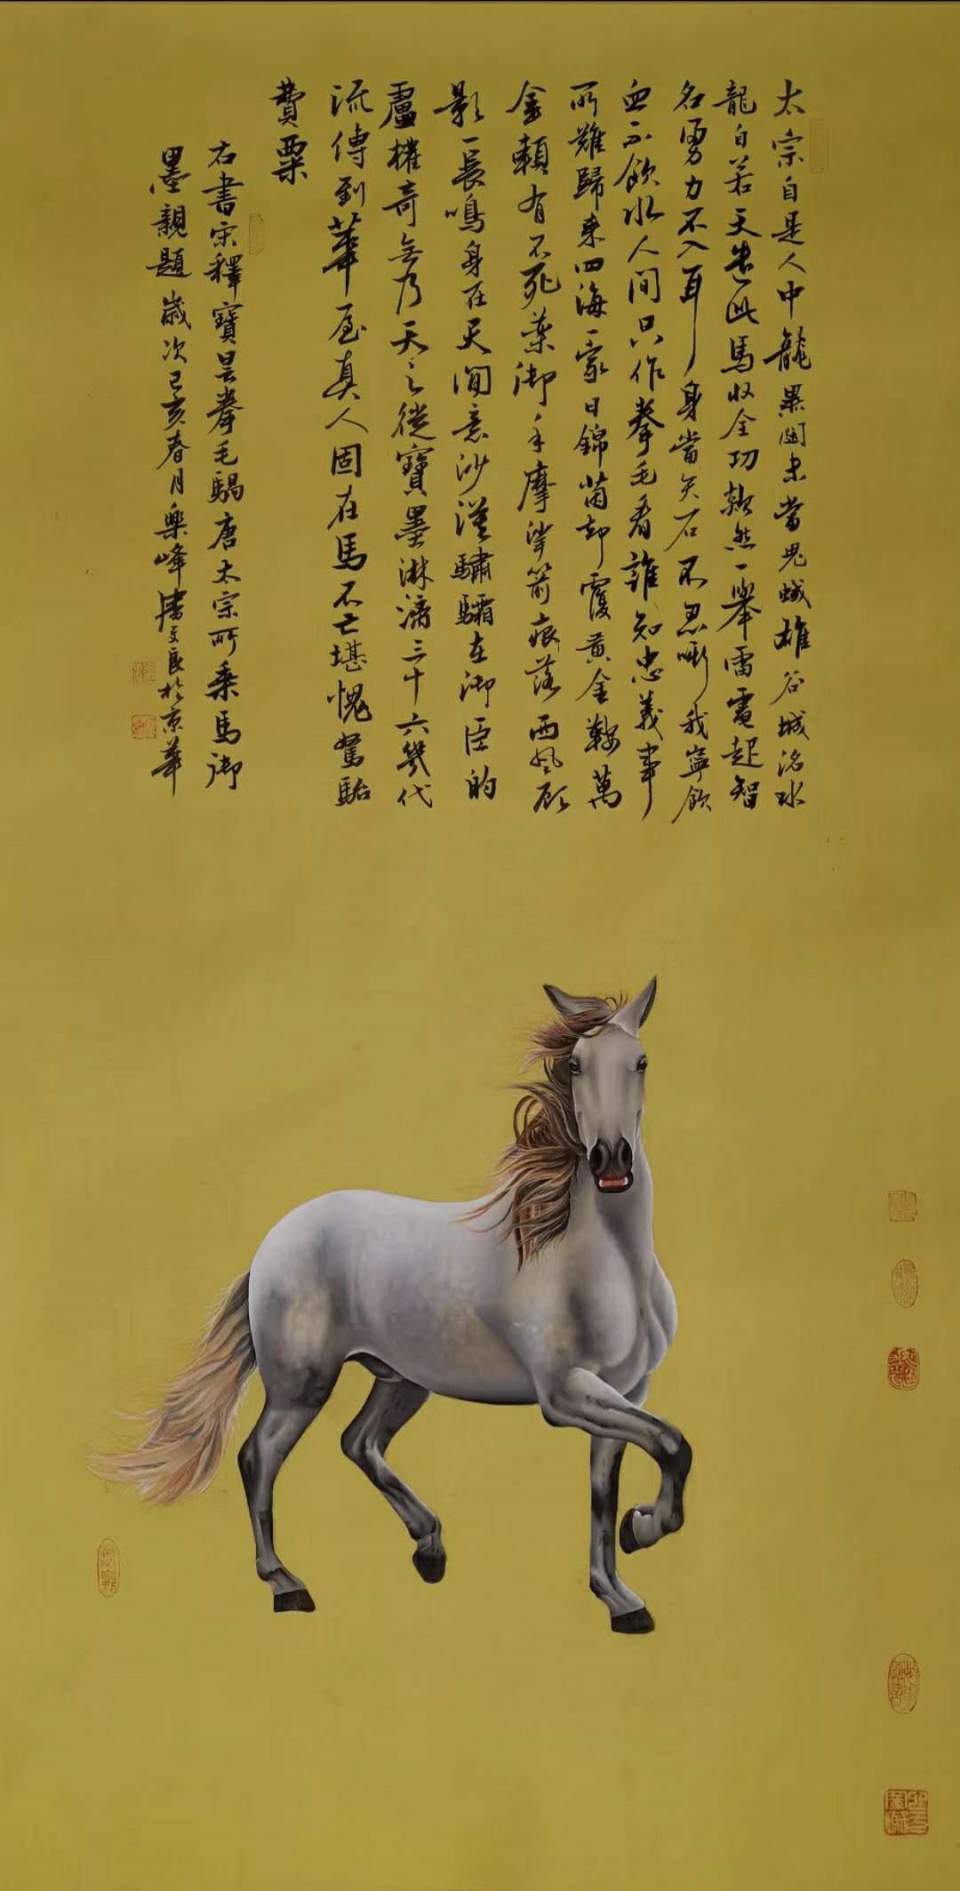 太宗自是人中龍黑闥未當兒雄谷城洺水
龍自若天遣此馬收全功欻然一舉雷電起智
名勇力不入耳身當矢石不思嘶我寧飲
血不飲水人間只作拳毛看誰知忠義事
所難歸來四海一家日錦茵却覆黃金鞍萬
金賴有不死藥御手摩挲箭痕落西風顧
影一長鳴身在天閒意沙漠驌驦在御臣的
盧權奇無乃天之徒寶墨淋漓三十六幾代
流傳到華屋真人固在馬不亡堪愧駑駘
費粟
右書宋釋寶曇拳毛騧唐太宗所乘馬御
墨親題歲次己亥春月樂峰潘文良於京華